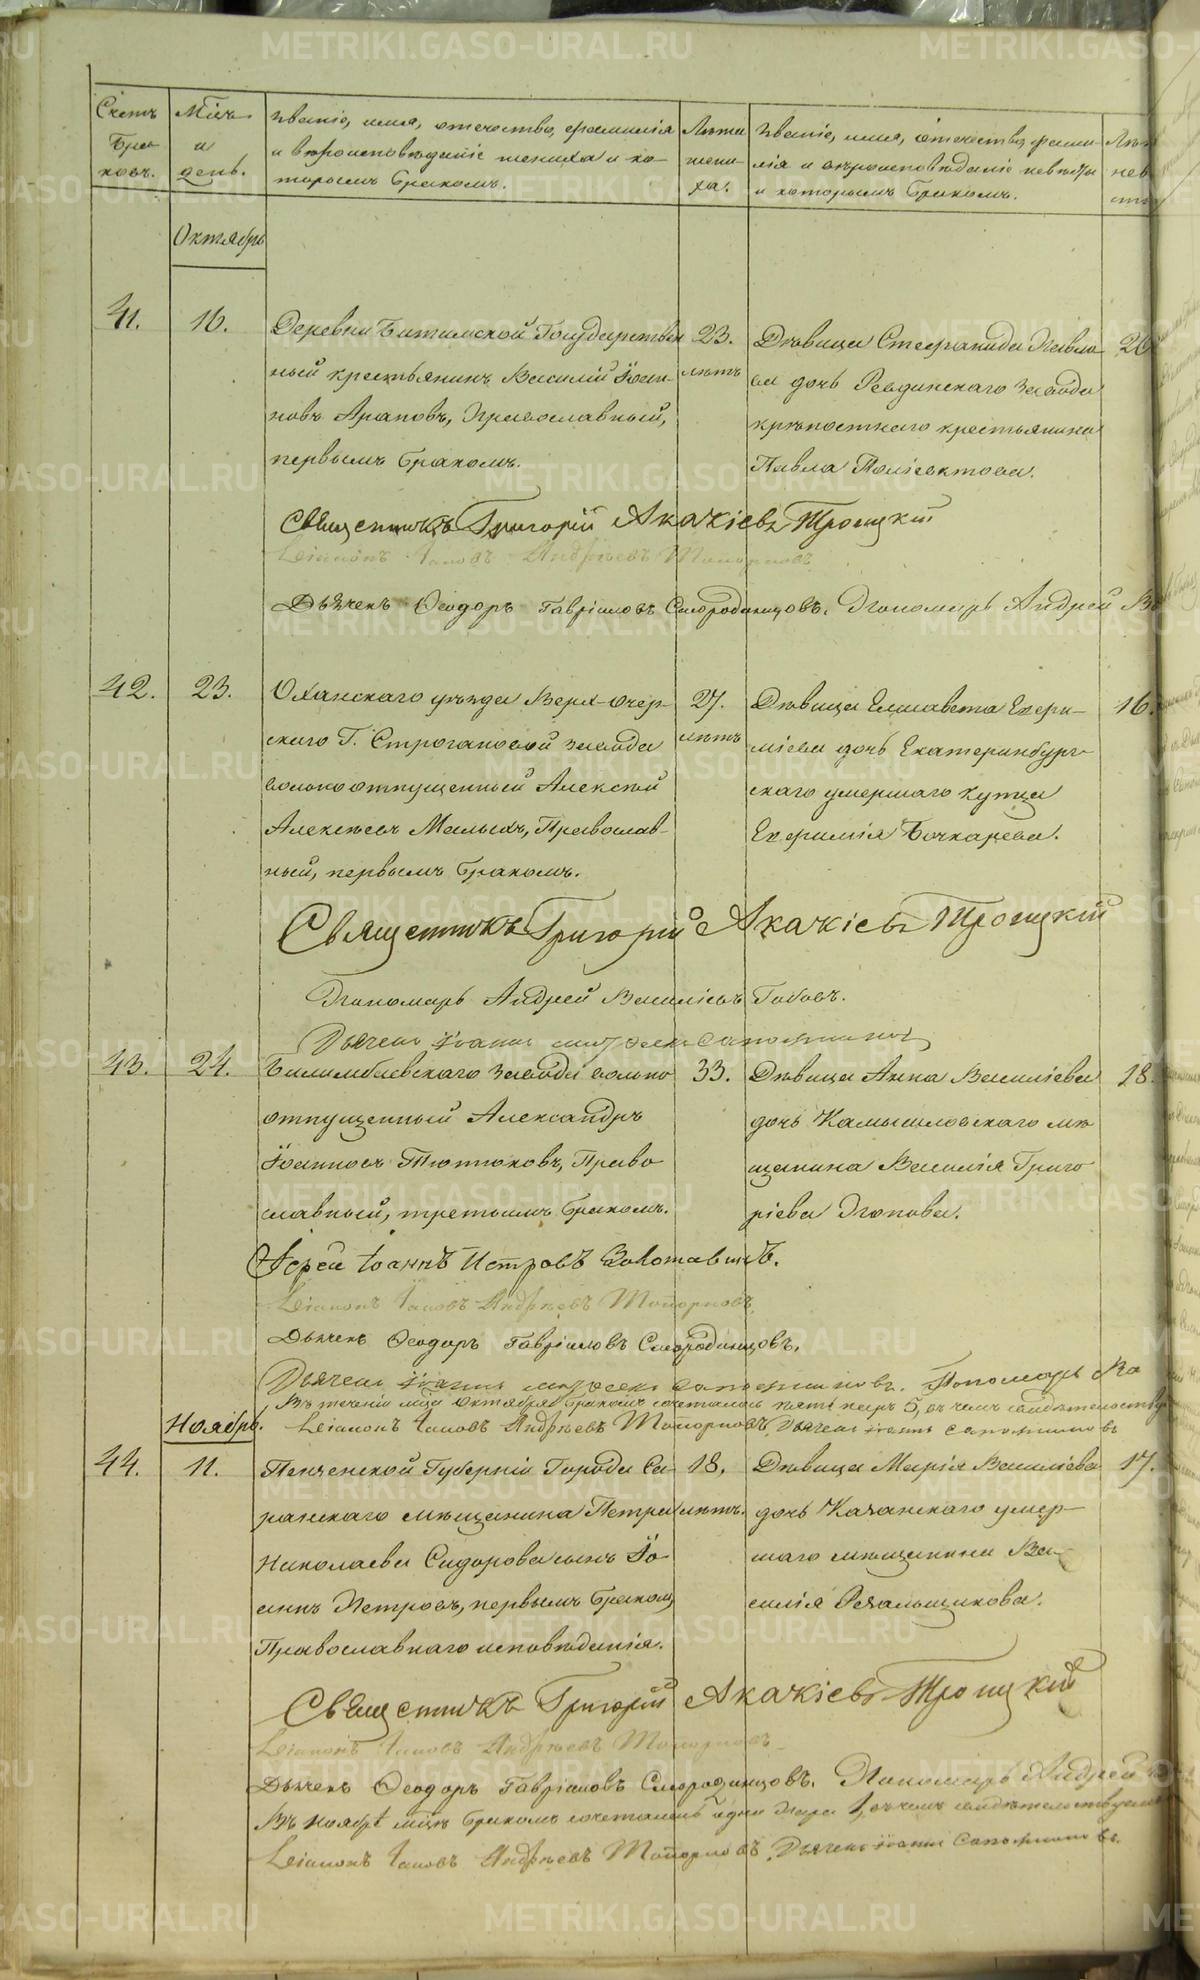 Счетъ браковъ.
Мѣсяцъ и день.
Званіе, имя, отечество, фамилія
и вѣроисповѣданіе жениха и ко-
торымъ бракомъ.
Лѣта жениха.
Званіе, имя, отечество, фами-
лія и вѣроисповѣданіе невѣсты
и которымъ бракомъ.
Октябрь
41.
16.
Деревни Битимской Государствен
ный крестьянинъ Василій Іоан-
новъ Араповъ, Православный,
первымъ бракомъ.
23.
лѣтъ
Дѣвица Стефанида Павло-
ва дочь Ревдинскаго завода
крѣпостнаго крестьянина
Павла Поліевктова.
Священникъ Григорій Акакіевъ Троицкій
Діаконъ Іаковъ Андрѣевъ Топорковъ
Дьячекъ Ѳеодоръ Гавріиловъ Смородинцовъ. Пономарь Андрей
42.
23.
Оханскаго уѣзда Верх-Очер-
скаго Г. Строгановой завода
вольноотпущенный Алексѣй
Алексѣевъ Малыхъ, Православ-
ный, первымъ бракомъ.
27.
лѣтъ
Дѣвица Елисавета Ефри-
міева дочь Екатеринбург-
скаго умершаго купца
Ефиміа Бочкарева.
16.
Священникъ Григорій Акакіевъ Троицкій
Пономарь Андрей Василіевъ
Дьячекъ Іоаннъ Сапожниковъ
43.
24.
Билимбаевскаго завода вольно
отпущенный Александръ
Іоанновъ Тютюковъ, Право
славный, третьимъ бракомъ.
33.
Дѣвица Анна Василіева
дочь Камышловскаго мѣ
щанина Василія Григо
ріева Попова.
18.
Іерей Іоаннъ Петровъ Золотавинъ.
Діаконъ Іаковъ Андрѣевъ Топорковъ.
Дьячекъ Ѳеодоръ Гавріиловъ Смородинцовъ.
Дьячекъ Іоаннъ Сапожниковъ. Пономарь
Въ теченіи мѣсяца Октября бракомъ сочеталось пять паръ 5, о чемъ свидѣтельству
Ноябрь.
Діаконъ Іаковъ Андрѣевъ Топорковъ. Дьячекъ Іоаннъ Сапожниковъ
44.
11.
Пензенской Губерніи Города Са-
ранскаго мѣщанина Петра
Николаева Сидорова сынъ Іо-
аннъ Петровъ, первымъ бракомъ,
Православнаго исповѣданія.
18.
лѣтъ.
Дѣвица Марія Василіева
дочь Казанскаго умер-
шаго мѣщанина Ва-
силія Рѣзальщикова.
17.
Священникъ Григорій Акакіевъ Троицкій
Діаконъ Іаковъ Андрѣевъ Топорковъ
Дьячекъ Ѳеодоръ Гавріиловъ Смородинцовъ. Пономарь Андрей
Въ Ноябрѣ мѣсяцѣ бракомъ сочеталась одна пара 1, о чемъ свидѣтельствуемъ
Діаконъ Іаковъ Андрѣевъ Топорковъ. Дьячекъ Іоаннъ Сапожниковъ.
METRIKI.GASO-URAL.RU